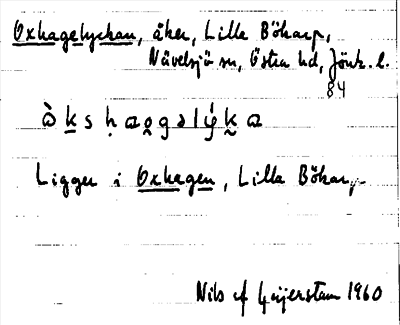 Oxhagelyckan, åker, Lilla Bökarp,
Nävelsjö sn, Östra hd, Jönk. l.
84
Ligger i Oxhagen, Lilla Bökarp
Nils af Geijerstam 1960